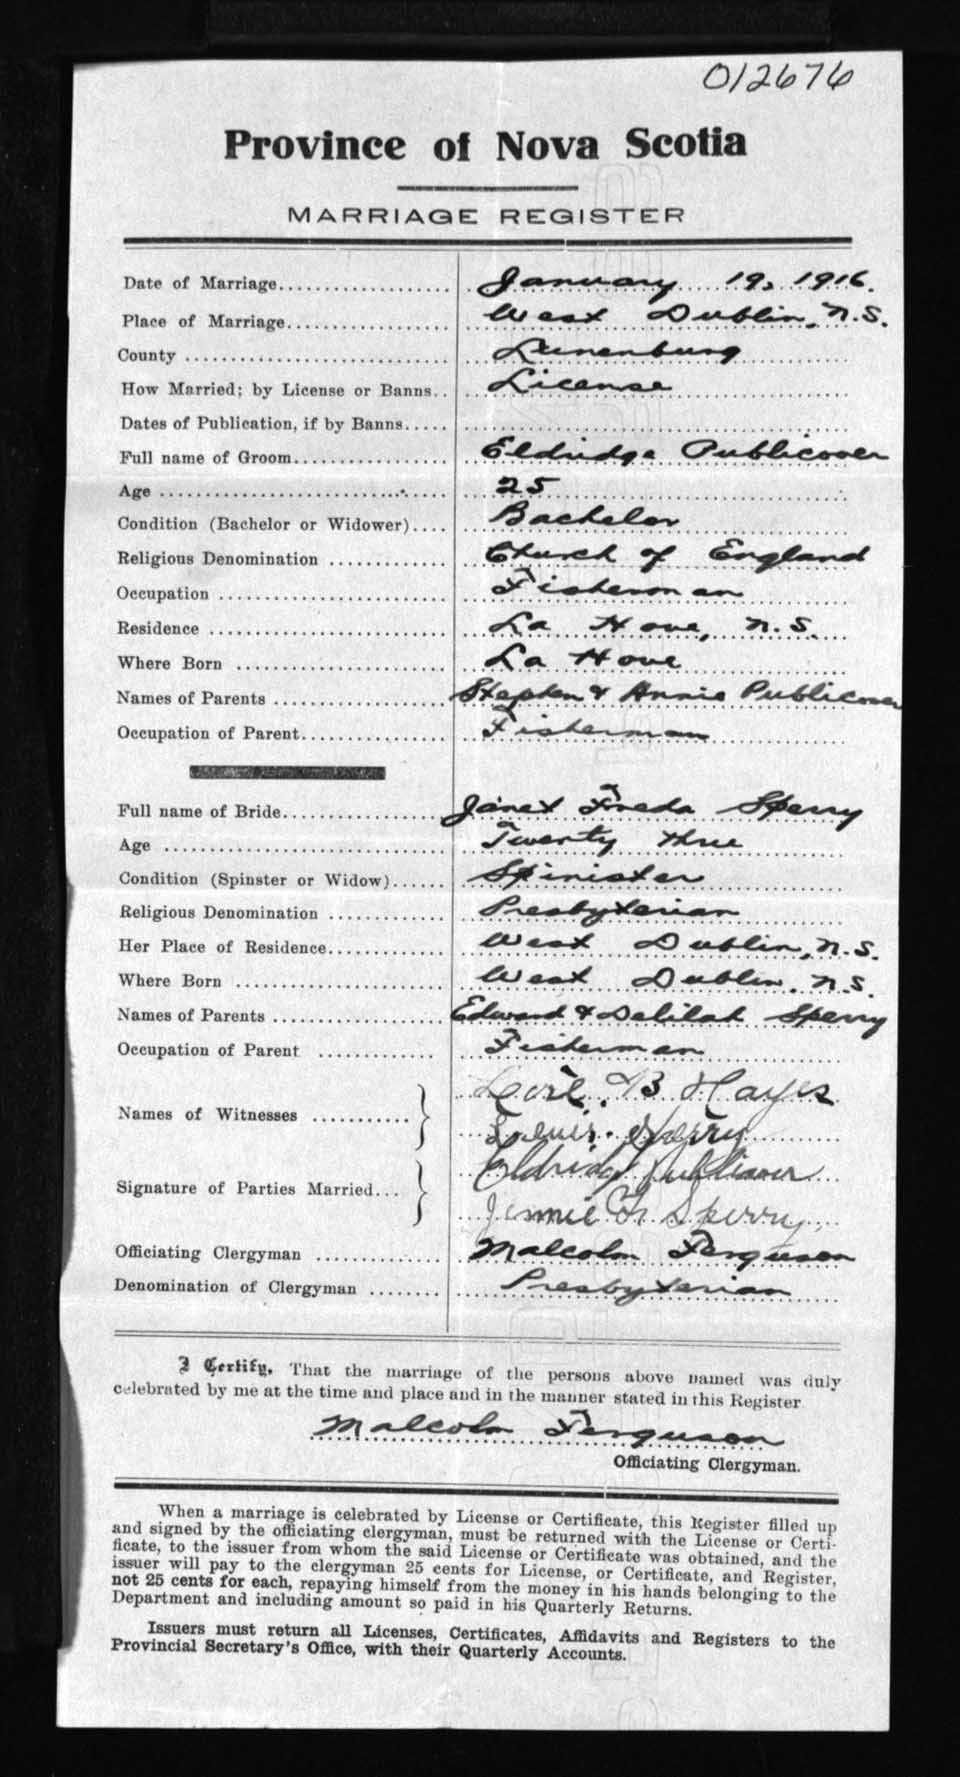 012676
Province of Nova Scotia
MARRIAGE REGISTER
Date of Marriage January 19, 1916.
Place of Marriage West Dublin, N.S.
County Lunenburg
How Married; by License or Banns License
Dates of Publication, if by Banns
Full name of Groom Eldridge Publicover
Age 25
Condition (Bachelor or Widower) Bachelor
Religious Denomination Church of England
Occupation Fisherman
Residence La Have, N.S.
Where Born La Have
Names of Parents Stephen & Annie Publicover
Occupation of Parent Fisherman
Full name of Bride Janet Freda Sperry
Age Twenty three
Condition (Spinster or Widow) Spinister
Religious Denomination Presbyterian
Her Place of Residence West Dublin, N.S.
Where Born West Dublin, N.S.
Names of Parents Edward & Delilah Sperry
Occupation of Parent Fisherman
B Hayes
Names of Witnesses
Sperry
Eldridge Publicover
Signature of Parties Married
Jennie F Sperry
Officiating Clergyman Malcolm Ferguson
Denomination of Clergyman Presbyterian
I Certify, That the marriage of the persons above named was duly
celebrated by me at the time and place and in the manner stated in this Register
Malcolm Ferguson
Officiating Clergyman.
When a marriage is celebrated by License or Certificate, this Register filled up
and signed by the officiating clergyman, must be returned with the License or Certi-
ficate, to the issuer from whom the said License or Certificate was obtained, and the
issuer will pay to the clergyman 25 cents for License, or Certificate, and Register,
not 25 cents for each, repaying himself from the money in his hands belonging to the
Department and including amount so paid in his Quarterly Returns.
Issuers must return all Licenses, Certificates, Affidavits and Registers to the
Provincial Secretary's Office, with their Quarterly Accounts.